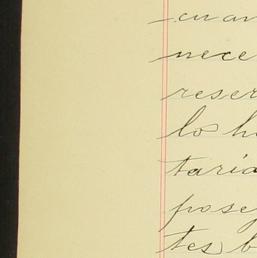 cuan
nece
reser
lo h
taria
pose
tes b